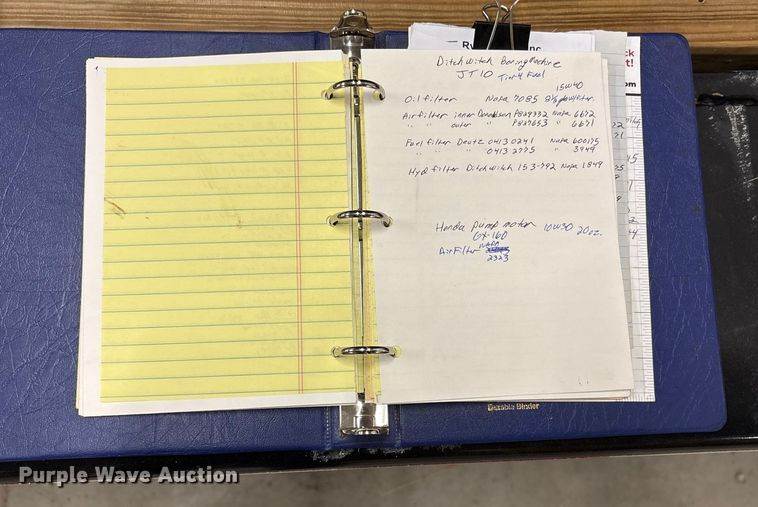 Ditch Witch Boring Machine
JT10 Tier 4 Fuel
15W40
Oil filter Napa 7085
Air filter inner Donaldson P829332 Napa 6672
" " outer " P827653 " 6671
Fuel filter Deutz 0413 0241 Napa 600175
" 0413 2775 " 3949
Hyd filter Ditch Witch 153-792 Napa 1849
Honda pump motor 10W30 20 oz.
GX-160
NAPA
Air Filter
2323
Inc
ck
t!
om
Binder
Purple Wave Auction®